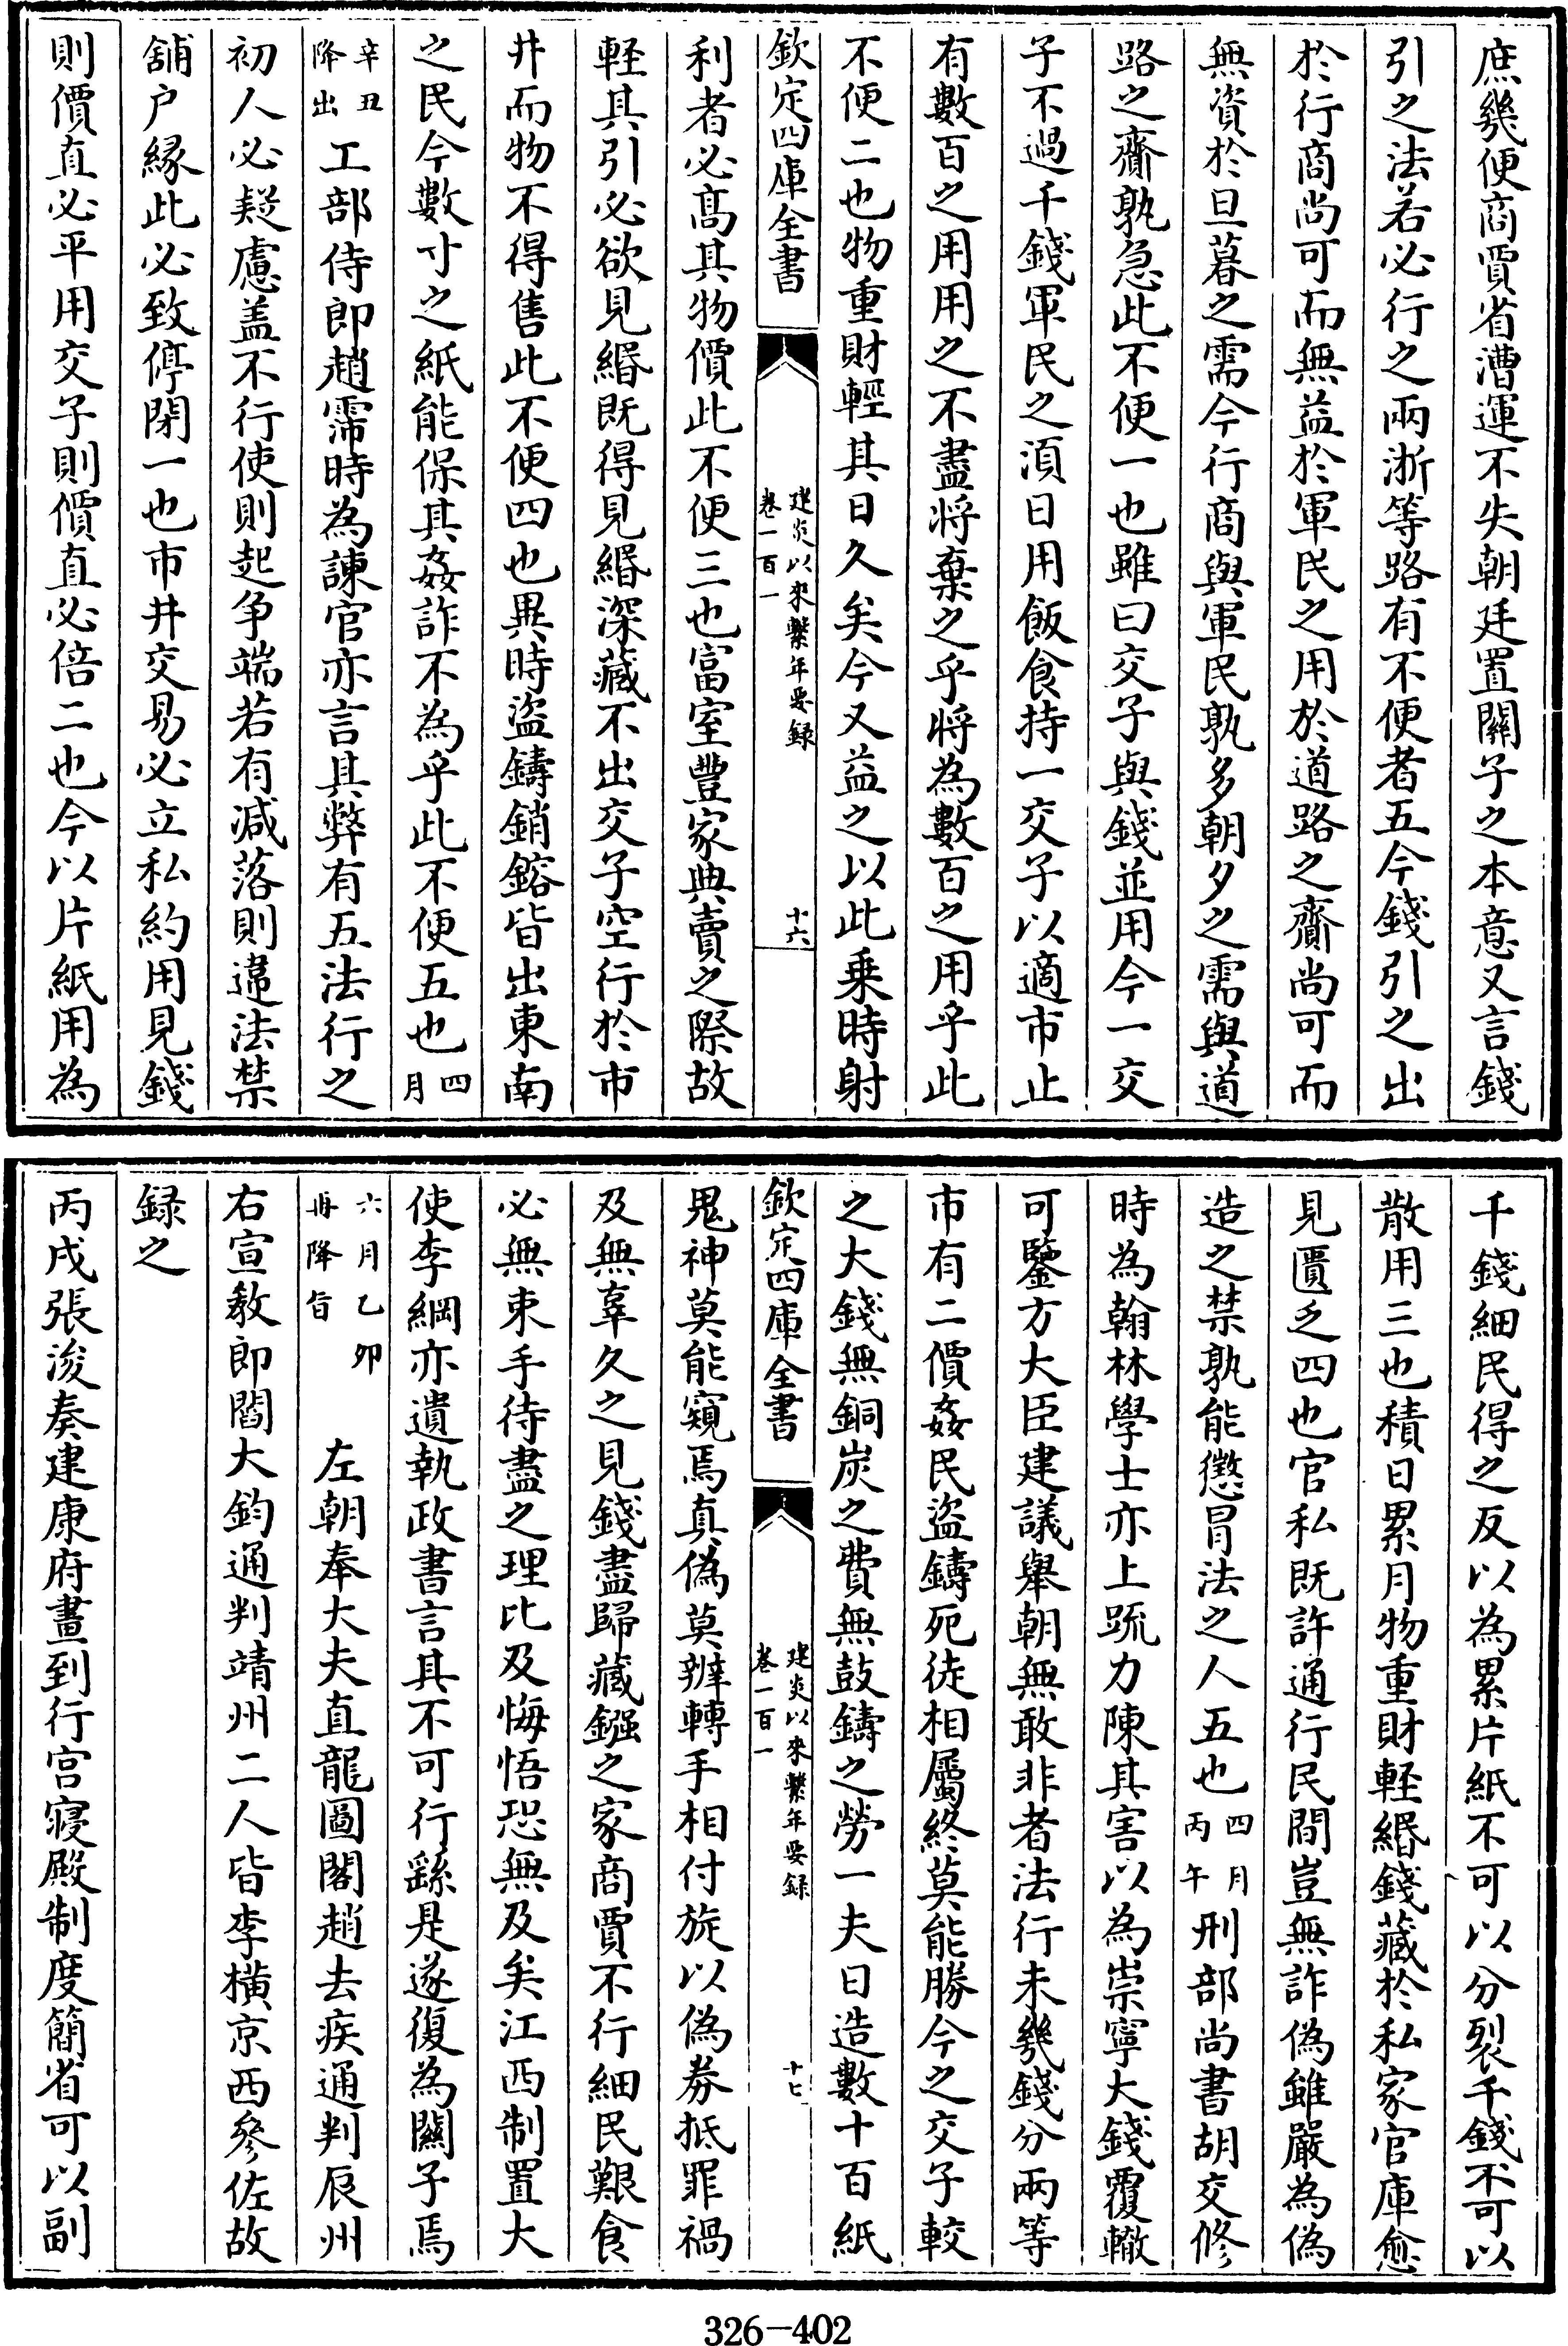 庶幾便商賈省漕運不失朝廷置關子之本意又言錢
引之法若必行之兩浙等路有不便者五今錢引之出
於行商尚可而無益於軍民之用於道路之齎尚可而
無資於旦暮之需今行商與軍民孰多朝夕之需與道
路之齎孰急此不便一也雖曰交子與錢並用今一交
子不過千錢軍民之湏日用飯食持一交子以適市止
有數百之用用之不盡將棄之乎將為數百之用乎此
不便二也物重財輕其日久矣今又益之以此乗時射
欽定四庫全書
建炎以來繫年要録
卷一百一
十六
利者必髙其物價此不便三也富室豐家典賣之際故
軽其引必欲見緡既得見緡深藏不出交子空行於市
井而物不得售此不便四也異時盜鑄銷鎔皆出東南
之民今數寸之紙能保其姦詐不為乎此不便五也四月
辛丑降出工部侍郎趙霈時為諫官亦言其弊有五法行之
初人必疑慮盖不行使則起争端若有減落則違法禁
舖户縁此必致停閉一也市井交易必立私約用見錢
則價直必平用交子則價直必倍二也今以片紙用為
千錢細民得之反以為累片紙不可以分裂千錢不可以
散用三也積日累月物重財軽緡錢藏於私家官庫愈
見匱乏四也官私既許通行民間豈無詐偽雖嚴為偽
造之禁孰能懲冒法之人五也四月丙午刑部尚書胡交修
時為翰林學士亦上疏力陳其害以為崇寧大錢覆轍
可鑒方大臣建議舉朝無敢非者法行未幾錢分兩等
市有二價姦民盜鑄死徒相屬終莫能勝今之交子較
之大錢無銅炭之費無鼓鑄之勞一夫日造數十百紙
欽定四庫全書
建炎以來繫年要録
卷一百一
十七
鬼神莫能窺焉真偽莫辨轉手相付旋以偽券抵罪禍
及無辜久之見錢盡歸藏鏹之家商賈不行細民艱食
必無束手待盡之理比及悔悟恐無及矣江西制置大
使李綱亦遺執政書言其不可行繇是遂復為關子焉
六月乙卯再降旨左朝奉大夫直龍圖閣趙去疾通判辰州
右宣敎郎閻大鈞通判靖州二人皆李橫京西參佐故
録之
丙戌張浚奏建康府畫到行宫寢殿制度簡省可以副
326-402